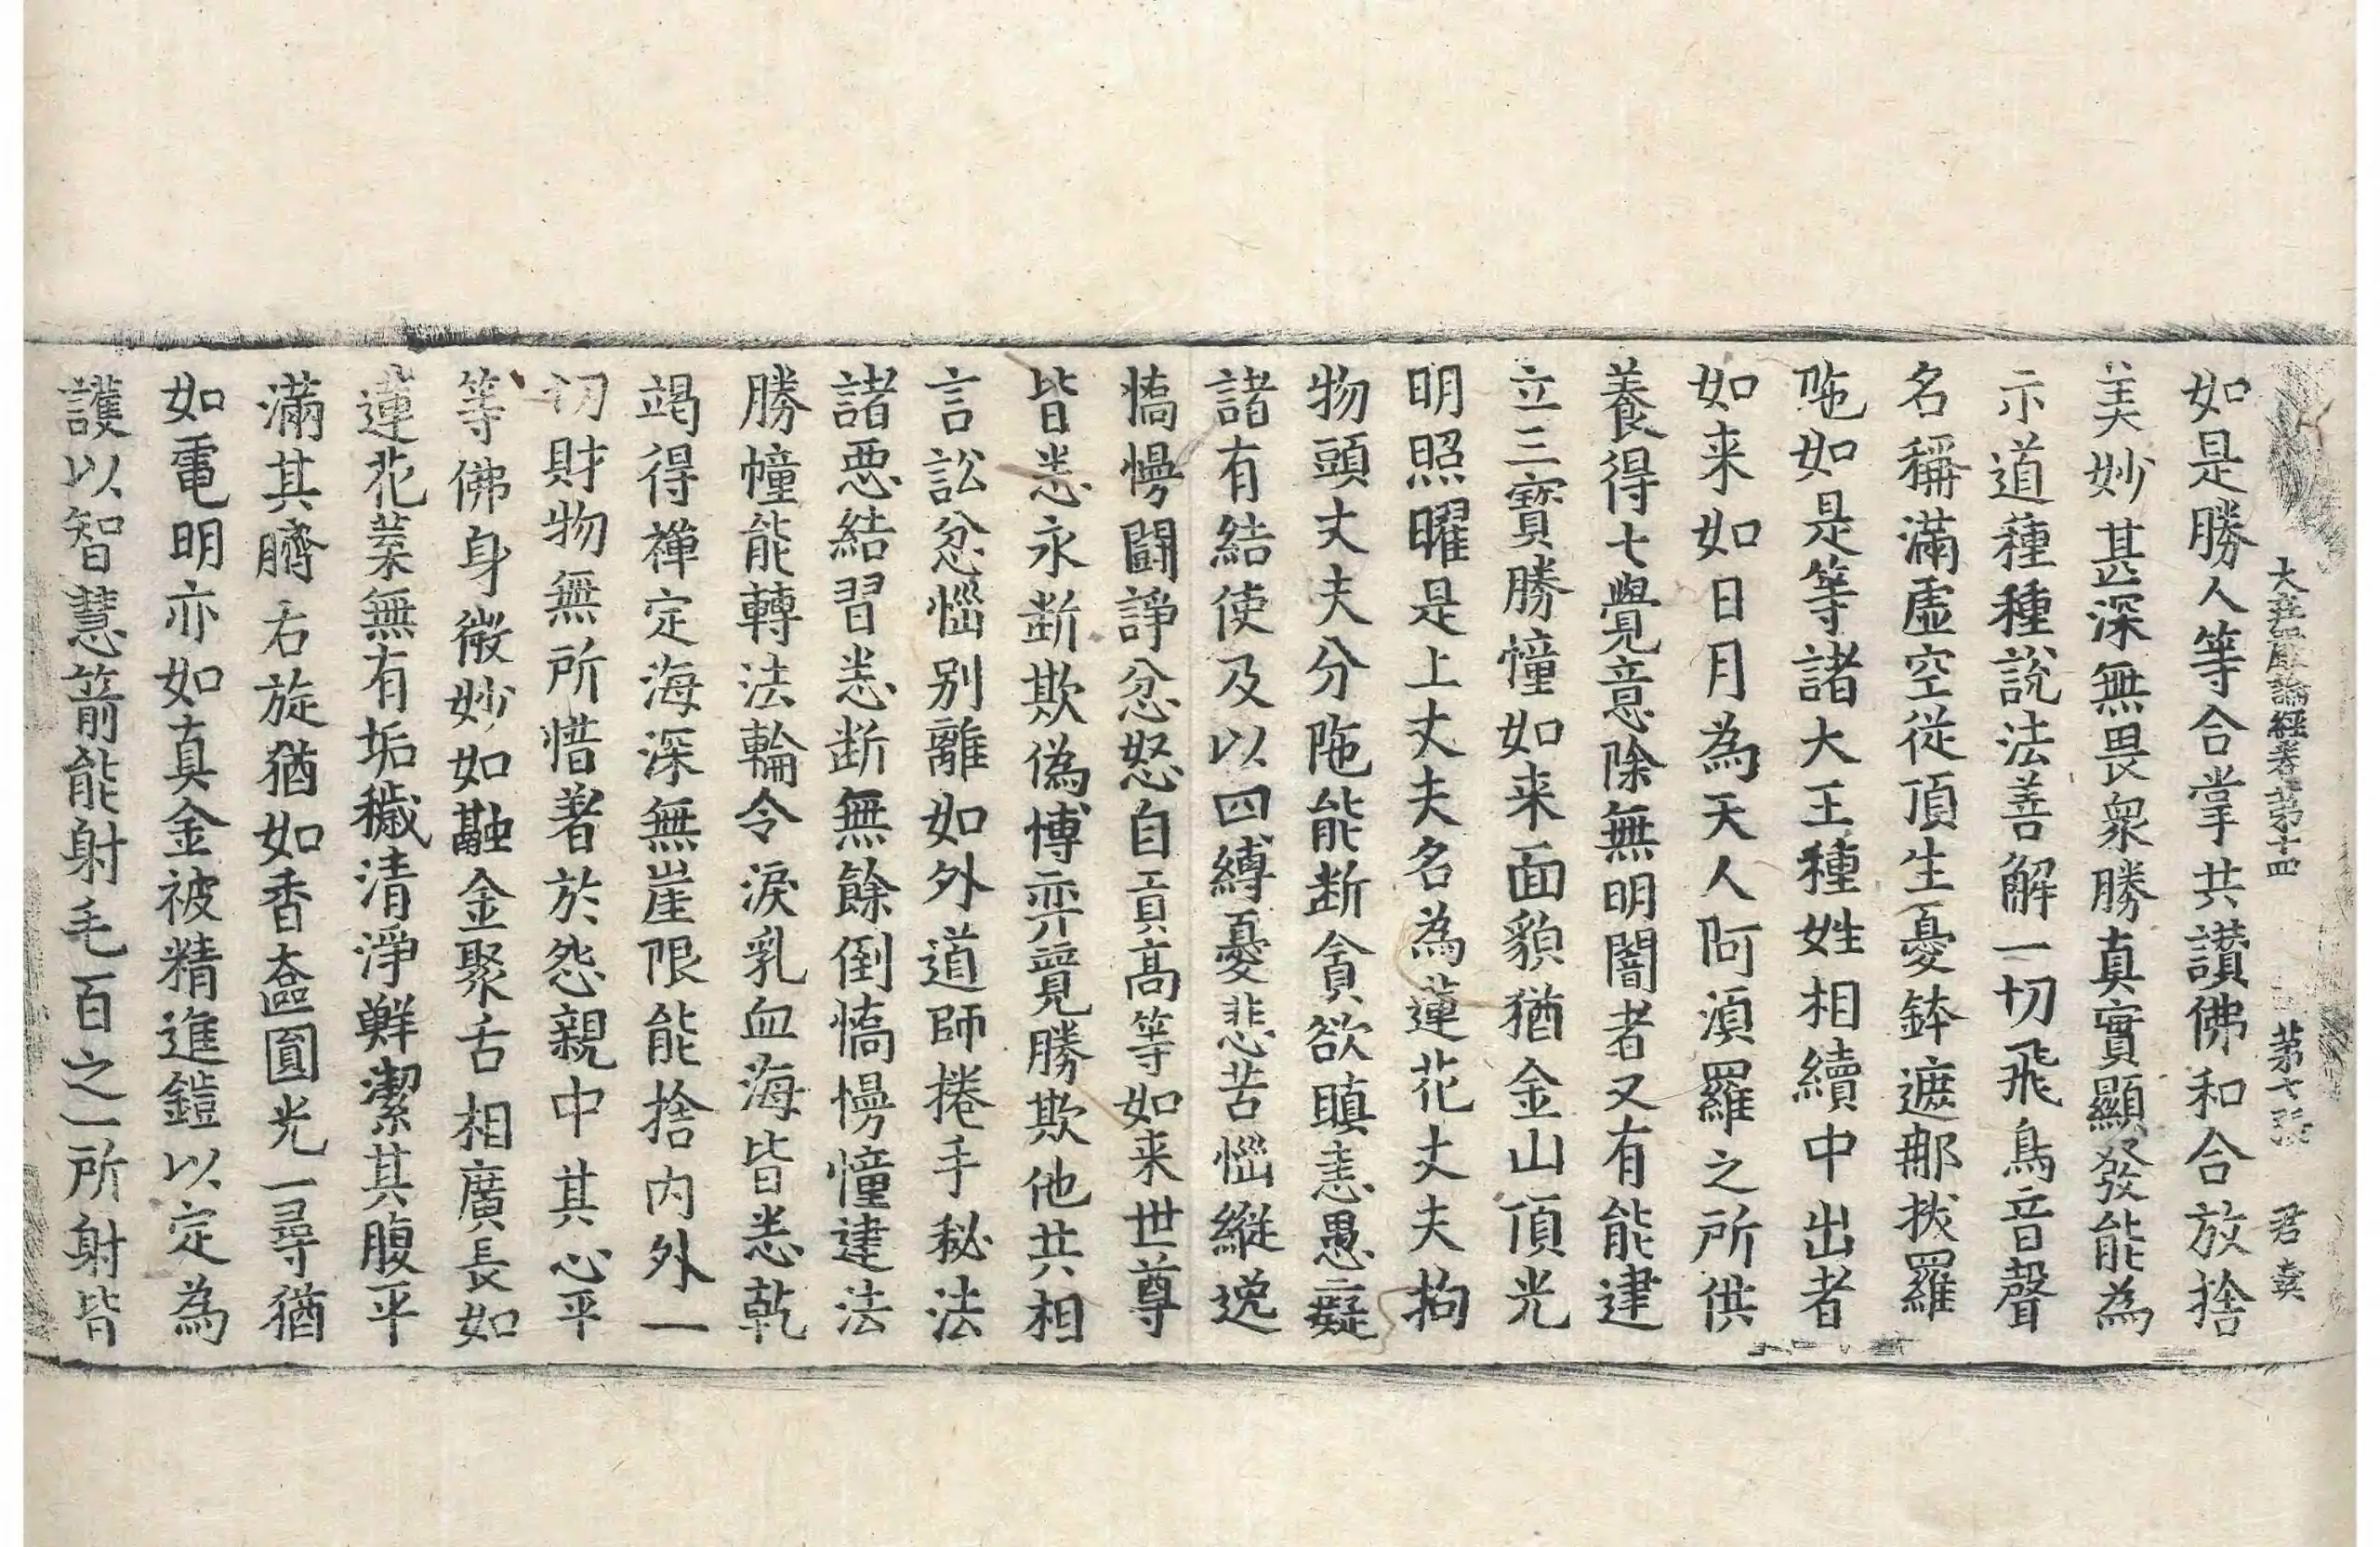 大莊嚴論經卷第十四 第七張 君
如是勝人等合掌共讃佛和合放捨
美妙甚深無畏衆勝真實顯發能為
示道種種說法善解一切飛鳥音聲
名稱滿虛空從頂生憂鉢遮那拔羅
陁如是等諸大王種姓相續中出者
如来如日月為天人阿湏羅之所供
養得七覺意除無明闇者又有能建
立三寶勝憧如来面貌猶金山頂光
明照曜是上丈夫名為蓮花丈夫拘
物頭丈夫分陁能断貪欲瞋恚愚癡
諸有結使及以四縛憂悲苦惱縱逸
憍慢闘諍忿怒自貢高等如来世尊
皆悉永断欺偽博弈覓勝欺他共相
言訟忿惱别離如外道師捲手秘法
諸惡結習悉断無餘倒憍慢憧建法
勝幢能轉法輪令淚乳血海皆悉乾
竭得禪定海深無崖限能捨内外一
切財物無所惜著於怨親中其心平
等佛身微妙如融金聚舌相廣長如
蓮花葉無有垢穢清淨鮮潔其腹平
滿其臍右旋猶如香奩圓光一尋猶
如電明亦如真金被精進鎧以定為
護以智慧箭能射毛百之一所射皆